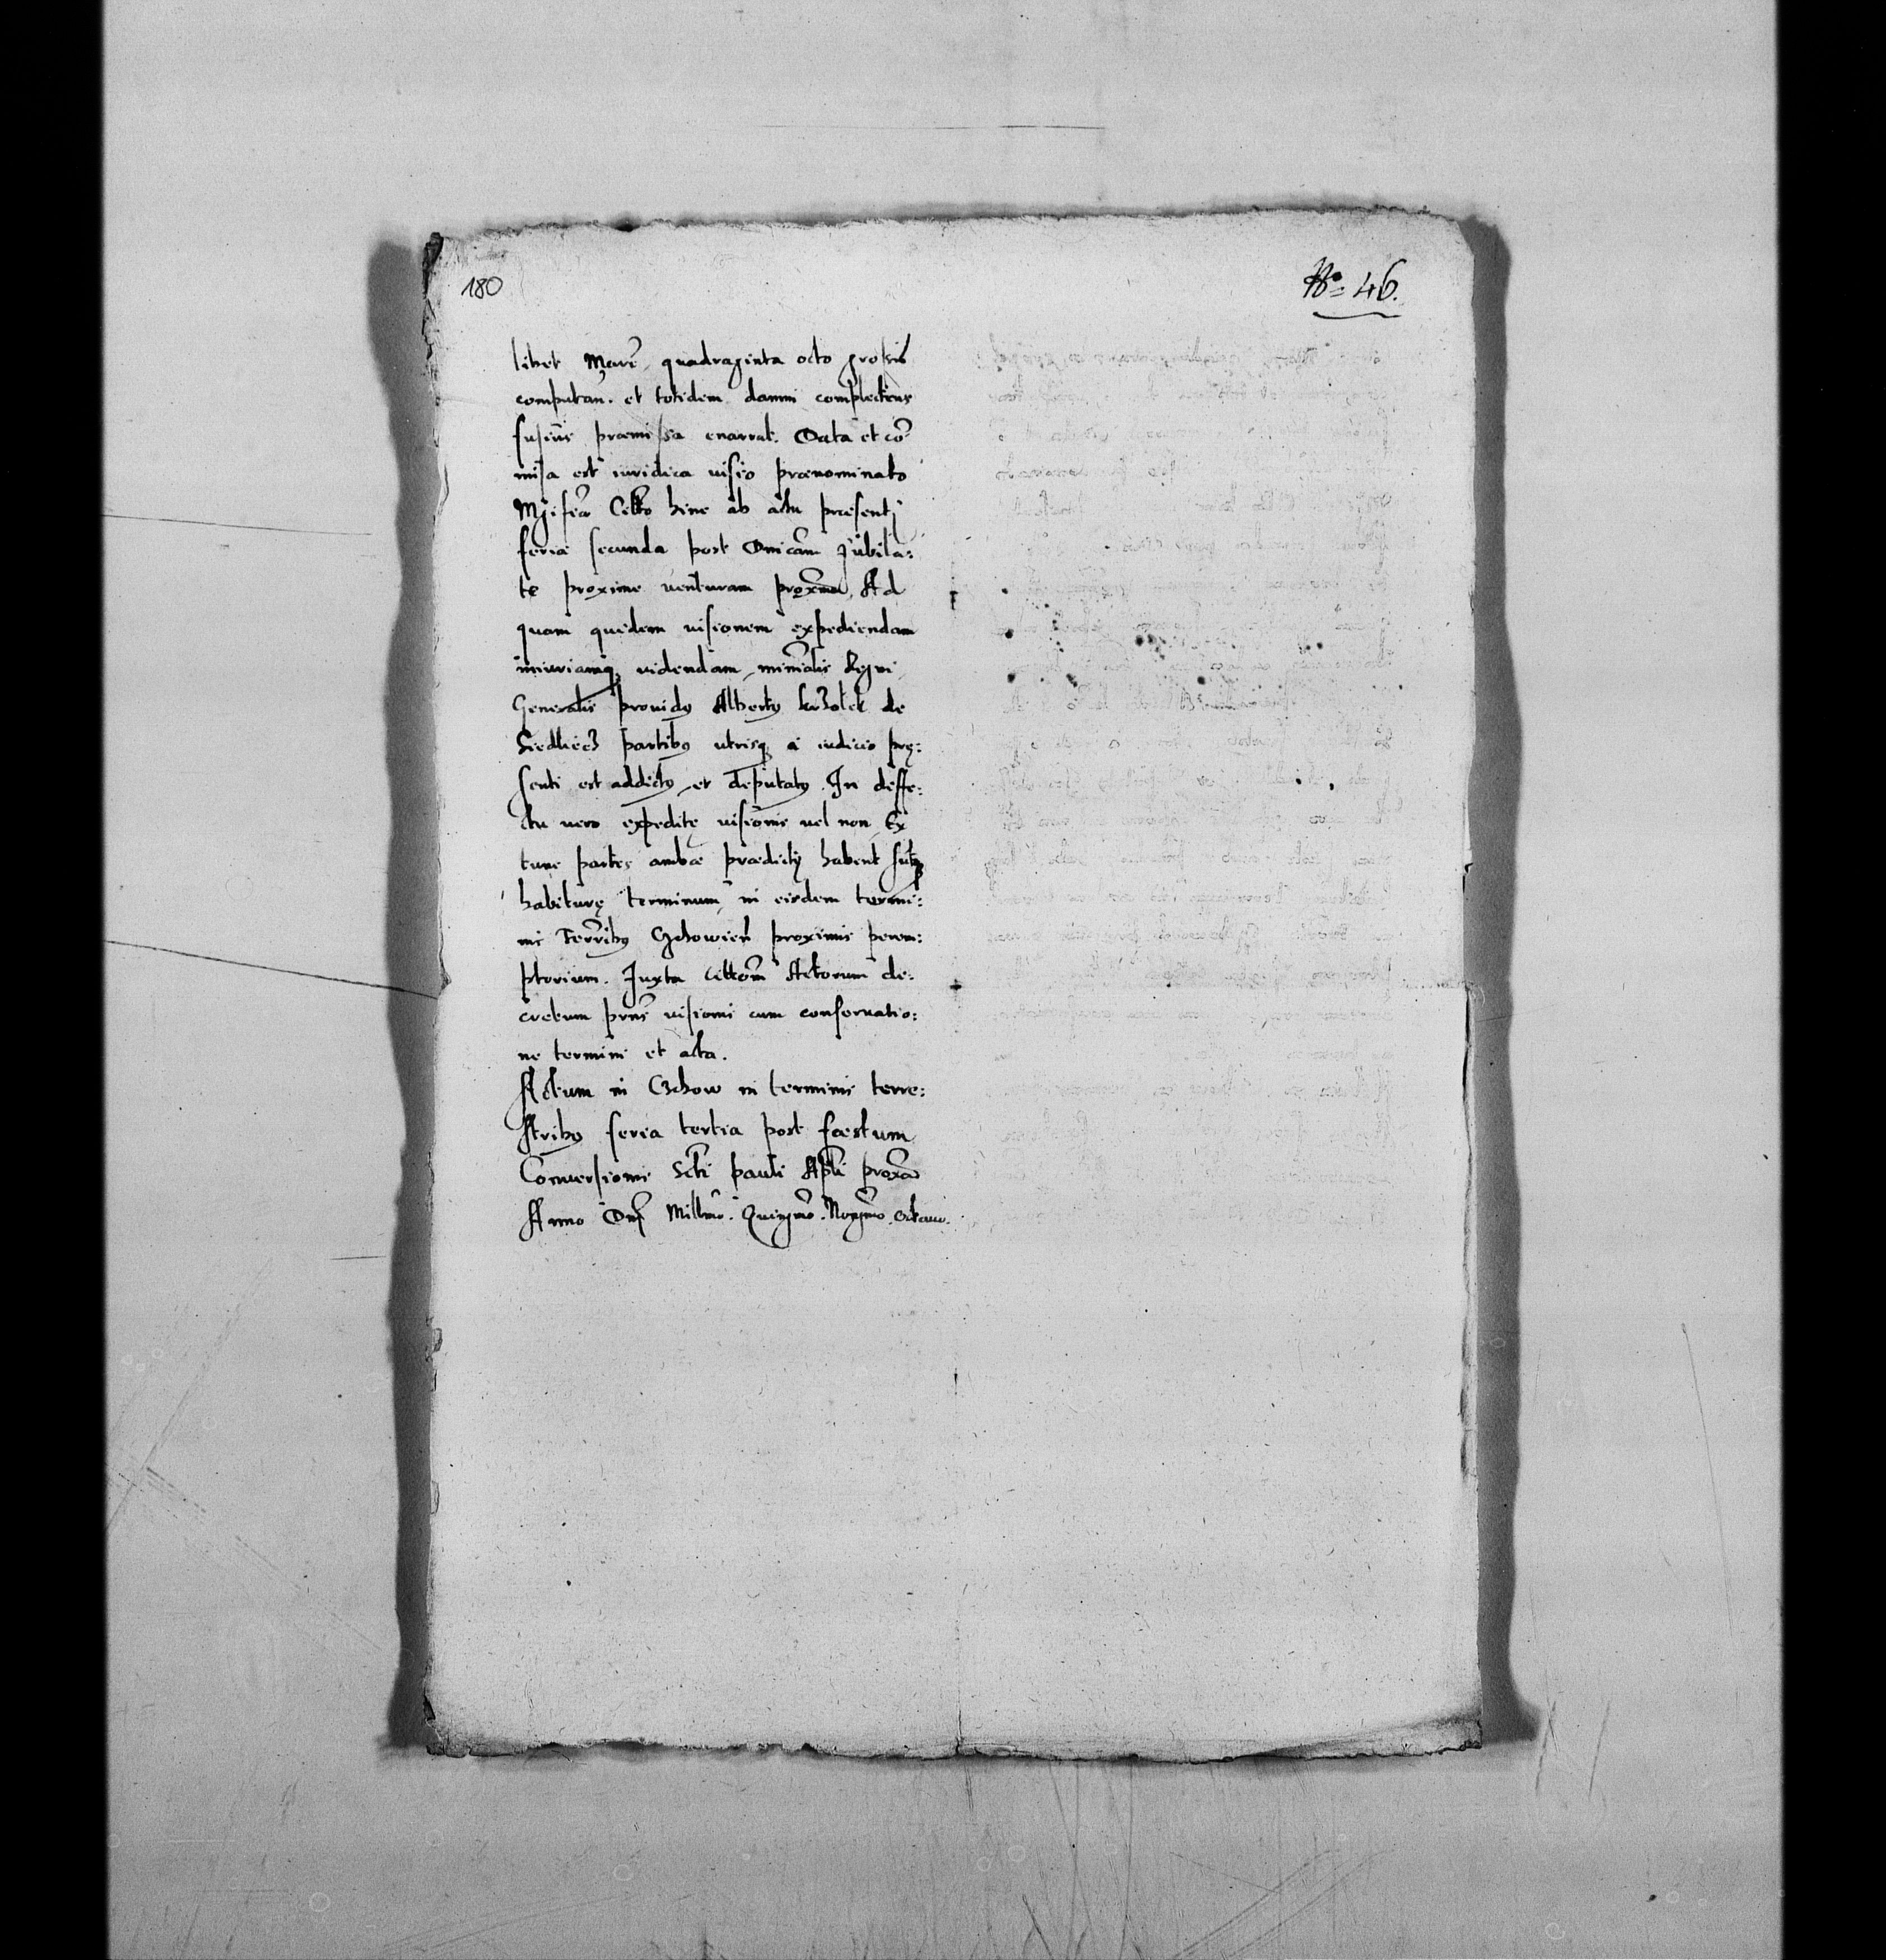 180
No 46.
libet Marc. quadraginta octo grossis
computan. et totidem damni complectens
fusius præmissa enarrat. Data et cō
misa est iuridica visio prænominato
hinc ab actu præsentj
feria secunda post Dnicām Jubila:
te proxime venturam proxima, Ad
quam quidem visionem expediendam
iniuriamq; videndam, minrālis Regni
Generalis providus Albertus de
Siedliecz partibus utrisq; a iudicio prę:
senti est addictus et deputatus. In deffe:
ctu vero expeditę visionis vel non Ex
tunc partes ambæ prædictę habent
habiturę terminum in eisdem termi:
nis Terribus Czchowien proximis perem:
ptorium. Juxta Actorum de:
cretum prns visionis cum conservatio:
ne termini et acta.
Actum in Czchow in terminis terre:
stribus feria tertia post fæstum
Conversionis Scti Pauli Apli proxa
Anno Dnj Millmo. Quingmo. Nongmo. octavo.